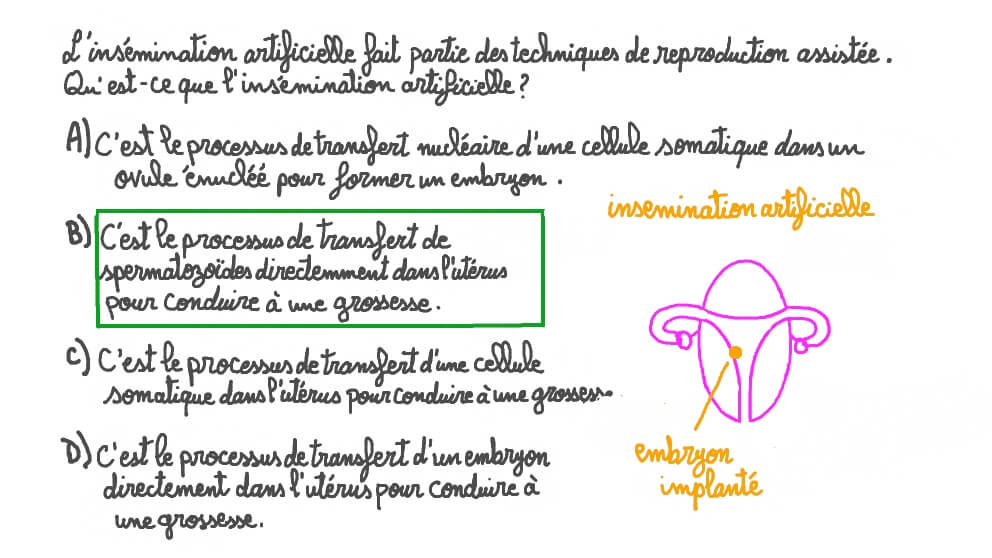 L'insémination artificielle fait partie des techniques de reproduction assistée.
Qu'est-ce que l'insémination artificielle?
A) C'est le processus de transfert nucléaire d'une cellule somatique dans un
ovule énucléé pour former un embryon.
insemination artificielle
B) C'est le processus de transfert de
spermatozoïdes directemment dans l'utérus
pour conduire à une grossesse.
C) C'est le processus de transfert d'une cellule
somatique dans l'utérus pour conduire à une grossesse.
D) C'est le processus de transfert d'un embryon
directement dans l'utérus pour conduire à
une grossesse.
embryon
implanté